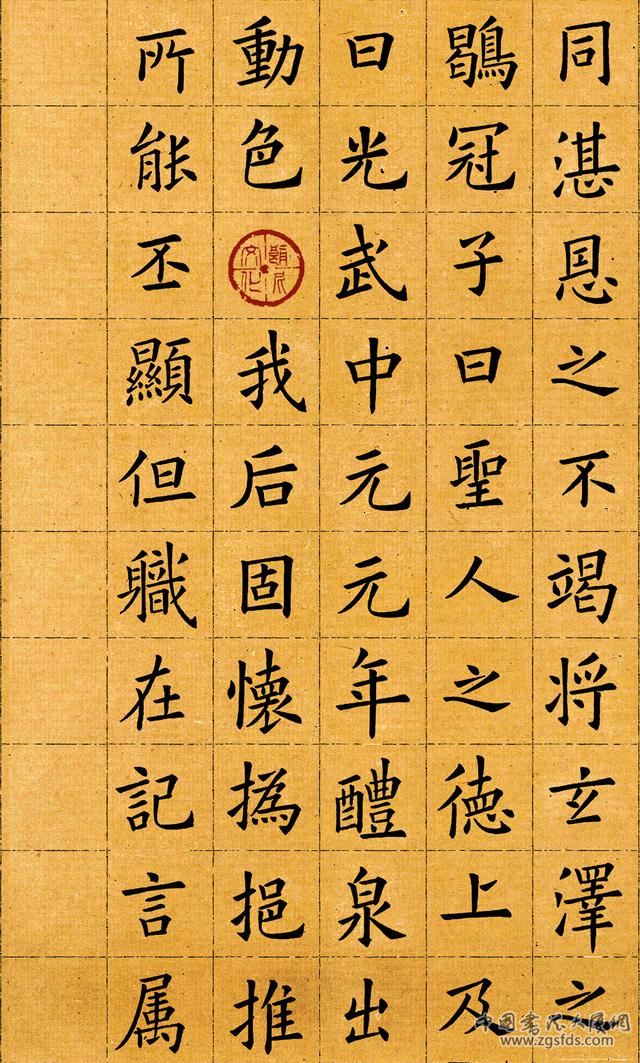 同湛恩之不竭将玄澤之
鶡冠子曰聖人之德上及
曰光武中元元年醴泉出
動色我后固懷撝挹推
所能丕顯但職在記言属
中国书法大厦网
www.zgsfds.com